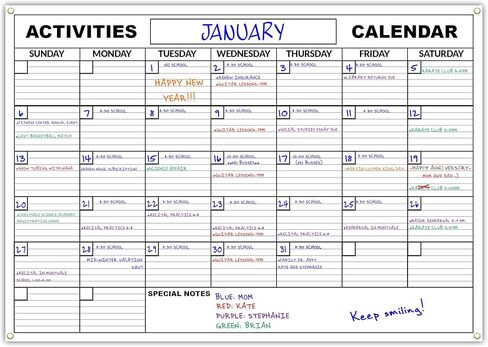 ACTIVITIES JANUARY CALENDAR
SUNDAY MONDAY TUESDAY WEDNESDAY THURSDAY FRIDAY SATURDAY
1 NO SCHOOL
HAPPY NEW
YEAR!!!
2 8:30 SCHOOL
•RENEW INSURANCE
•GUITAR LESSONS-7PM
3 8:30 SCHOOL
4 8:30 SCHOOL
•LIBRARY RETURNS DUE
5
•KARATE CLUB
6
•FITNESS CENTER ANNUAL EVENT
•LAST BASKETBALL MATCH
7 8:30 SCHOOL
8 8:30 SCHOOL
9 8:30 SCHOOL
•GUITAR LESSONS-7PM
10 8:30 SCHOOL
•SOCIAL STUDIES ESSAY DUE
11 8:30 SCHOOL
12
•KARATE CLUB
13
•SNOW TUBING WITH
14 8:30 SCHOOL
•RENEW SUBSCRIPTION
15 8:30 SCHOOL
•SCIENCE AFFAIR
16 10:00 SCHOOL
(NO BUSSES)
•GUITAR LESSONS-7PM
17 10:00 SCHOOL
(NO BUSSES)
18 NO SCHOOL
MARTIN LUTHER KING DAY
19
HAPPY ANNIVERSARY-
MOM AND DAD
KARATE CLUB
20
SCIENCE ACADEMY
REGISTRATION
21 8:30 SCHOOL
•RECITAL PRACTICE
22 8:30 SCHOOL
•RECITAL PRACTICE
23 8:30 SCHOOL
•RECITAL PRACTICE
•GUITAR LESSONS-7PM
24 8:30 SCHOOL
•RECITAL PRACTICE
25 8:30 SCHOOL
26
REHEARSAL
•KARATE CLUB
27
•RECITAL IN MONTVALE
SCHOOL
28 NO SCHOOL
MID-WINTER VACATION
29 8:30 SCHOOL
30 8:30 SCHOOL
•GUITAR LESSONS-7PM
31 8:30 SCHOOL
•FAMILY DR. APPT
KATE AND STEPHANIE
SPECIAL NOTES
BLUE: MOM
RED: KATE
PURPLE: STEPHANIE
GREEN: BRIAN
Keep smiling!